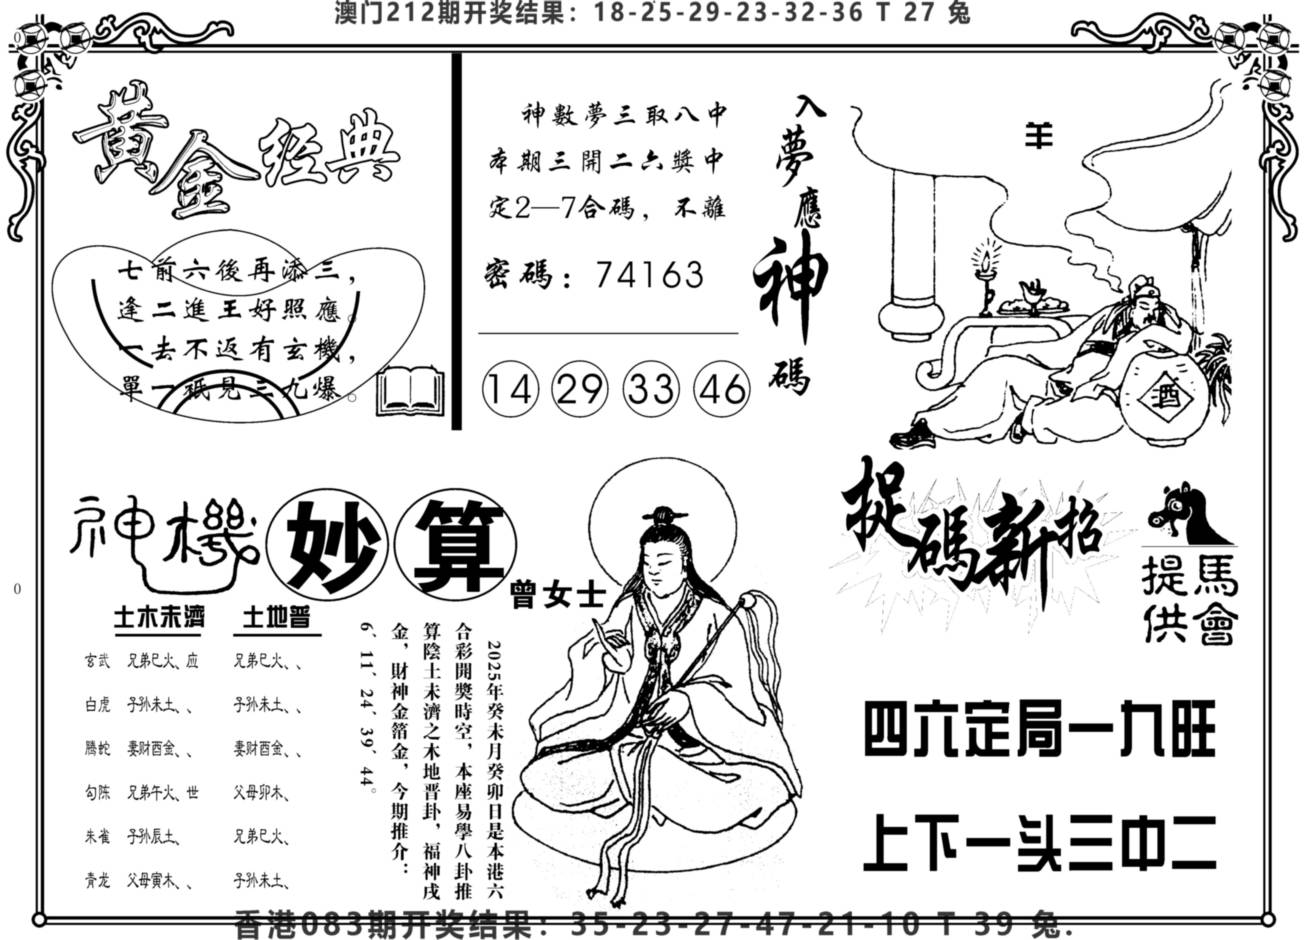 澳门212期开奖结果：18-25-29-23-32-36 T 27 兔
0
黄金经典
七前六後再添三，
逢二進王好照應。
一去不返有玄機，
單一祇見三九爆。
神數夢三取八中
本期三開二六獎中
定2—7合碼，不離
密碼：74163
14 29 33 46
入夢應神碼
羊
酒
神機妙算
曾女士
土木未濟 土地普
玄武 兄弟巳火、应 兄弟巳火、、
白虎 子孙未土、、 子孙未土、、
腾蛇 妻财酉金、、 妻财酉金、、
勾陈 兄弟午火、世 父母卯木、
朱雀 子孙辰土、 兄弟巳火、
青龙 父母寅木、、 子孙未土、
2025年癸未月癸卯日是本港六
合彩開獎時空，本座易學八卦推
算陰土未濟之木地晋卦，福神戌
金，財神金箔金，今期推介：
6、11、24、39、44。
0
捉碼新招
馬會
提供
四六定局一九旺
上下一头三中二
香港083期开奖结果：35-23-27-47-21-10 T 39 兔.